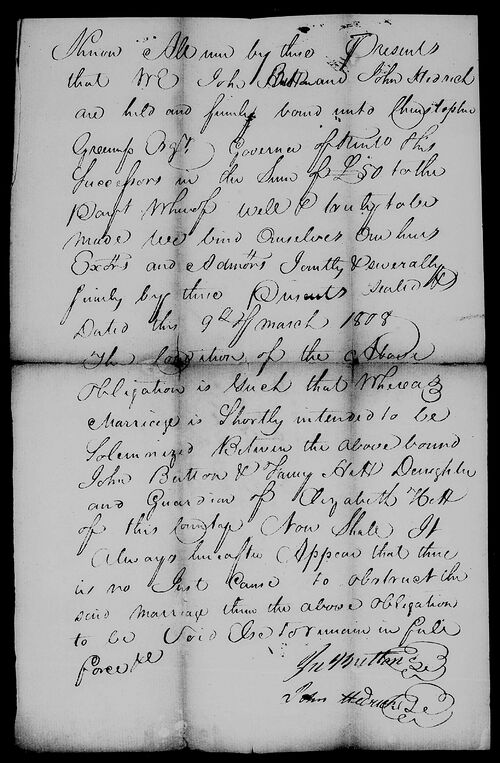 Know All men by these Presents
that WE John Button and John Hedrich
are held and firmly bound unto Christopher
Greenup Esqr. Governor of Kento & his
Successors in the Sum of £50 to the
Paymt Whereof well & truly to be
made we bind Ourselves Our heirs
Exōrs and Admōrs Jointly & severally
firmly by these Presents Sealed &
Dated this 9th of March 1808
The Condition of the Above
Obligation is Such that Whereas
Marriage is Shortly intended to be
Solemnized Between the above bound
John Button & Fanny Hett Daughter
and Guardian of Elizabeth Hett
of this County Now Shall It
Always hereafter Appear that there
is no Just Cause to obstruct the
said marriage then the above obligation
to be Void Else to remain in full
force &c
Jno Button
John Hedrick